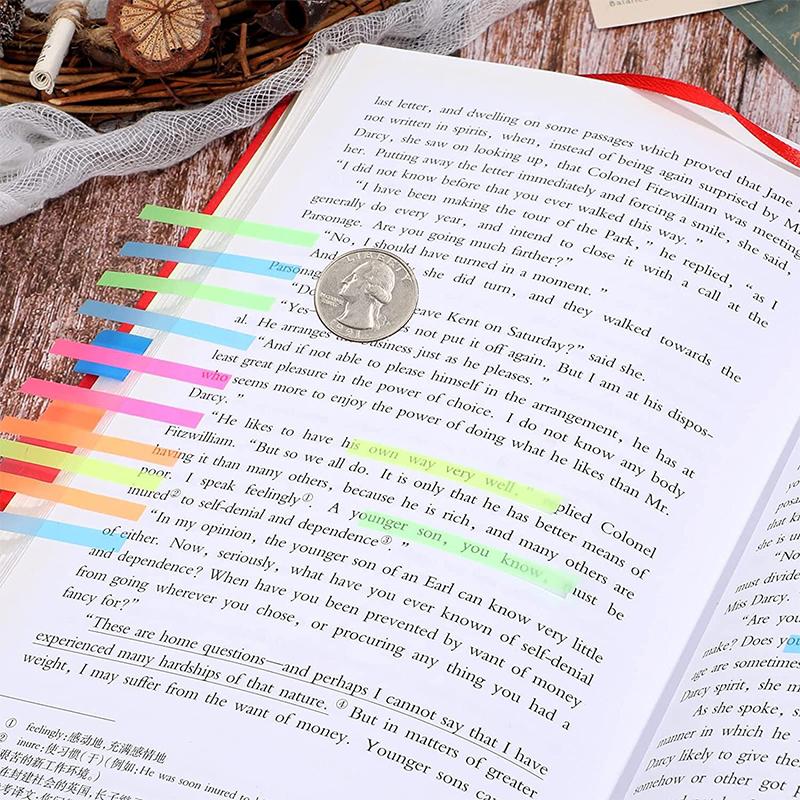 Balance
last letter, and dwelling on some passages which proved that Jane
not written in spirits, when, instead of being again surprised by M
Darcy, she saw on looking up, that Colonel Fitzwilliam was meeting
her. Putting away the letter immediately and forcing a smile, she said,
"I did not know before that you ever walked this way."
"I have been making the tour of the Park," he replied, "as I
generally do every year, and intend to close it with a call at the
Parsonage. Are you going much farther?"
"No, I should have turned in a moment."
And she did turn, and they walked towards the
Parsonag
LIBERTY
"D eave Kent on Saturday?" said she.
"Yes— s not put it off again. But I am at his dispos-
al. He arranges business just as he pleases."
"And if not able to please himself in the arrangement, he has at
least great pleasure in the power of choice. I do not know any body
who seems more to enjoy the power of doing what he likes than Mr.
Darcy."
"He likes to have his own way very well," replied Colonel
Fitzwilliam. "But so we all do. It is only that he has better means of
having it than many others, because he is rich, and many others are
poor. I speak feelingly①. A younger son, you know, must be
inured② to self-denial and dependence③."
"In my opinion, the younger son of an Earl can know very little
of either. Now, seriously, what have you ever known of self-denial
and dependence? When have you been prevented by want of money
from going wherever you chose, or procuring any thing you had a
fancy for?"
"These are home questions—and perhaps I cannot say that I have
experienced many hardships of that nature.④ But in matters of greater
weight, I may suffer from the want of money. Younger sons can
① feelingly:感动地,充满感情地
② inure:使习惯(于)(例如:He was soon inured to
艰苦的新工作环境。)
在封建社会的英国,长子
posa
that k
she is u
"No
must divide
Miss Darcy.
"Are you
make? Does you
age are sometimes
Darcy spirit, she m
As she spoke, s
manner in which he
Darcy likely to give the
somehow or other got p